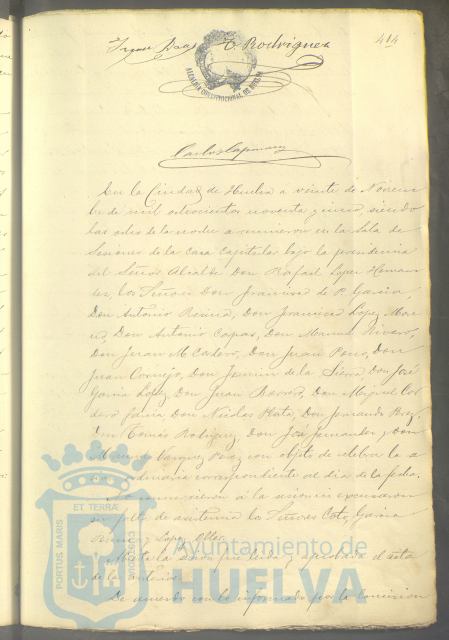 T. Rodriguez
414
ALCALDIA CONSTITUCIONAL DE HUELVA
En la Ciudad de Huelva a veinte de Noviem
bre de mil ochocientos noventa y cinco, siendo
las ocho de la noche se reunieron en la Sala de
Sesiones de la Casa Capitular bajo la presidencia
del Señor Alcalde Don Rafael Lopez Hernan
dez, los Señores Don Francisco de P. García,
Don Antonio Don Francisco Lopez More
no, Don Antonio Don Manuel Rivero,
Don Juan M. Cordero, Don Juan Don
Juan Cornejo, Don de la Sierra, Don José
García Lopez, Don Juan Don Miguel Cor
dero García, Don Nicolas Don Fernando
Don Tomás Rodriguez, Don José Fernandez y Don
Vazquez Perez con objeto de celebrar la
ordinaria correspondiente al dia de la fecha.
a la sesion excusaron
su falta de asistencia los Señores Coto, García
y Lopez
la sesion fué leida y aprobada el acta
de la anterior
De acuerdo con lo informado por la Comision
ET TERRÆ
PORTUS MARIS
CUSTODIA
Ayuntamiento de
HUELVA